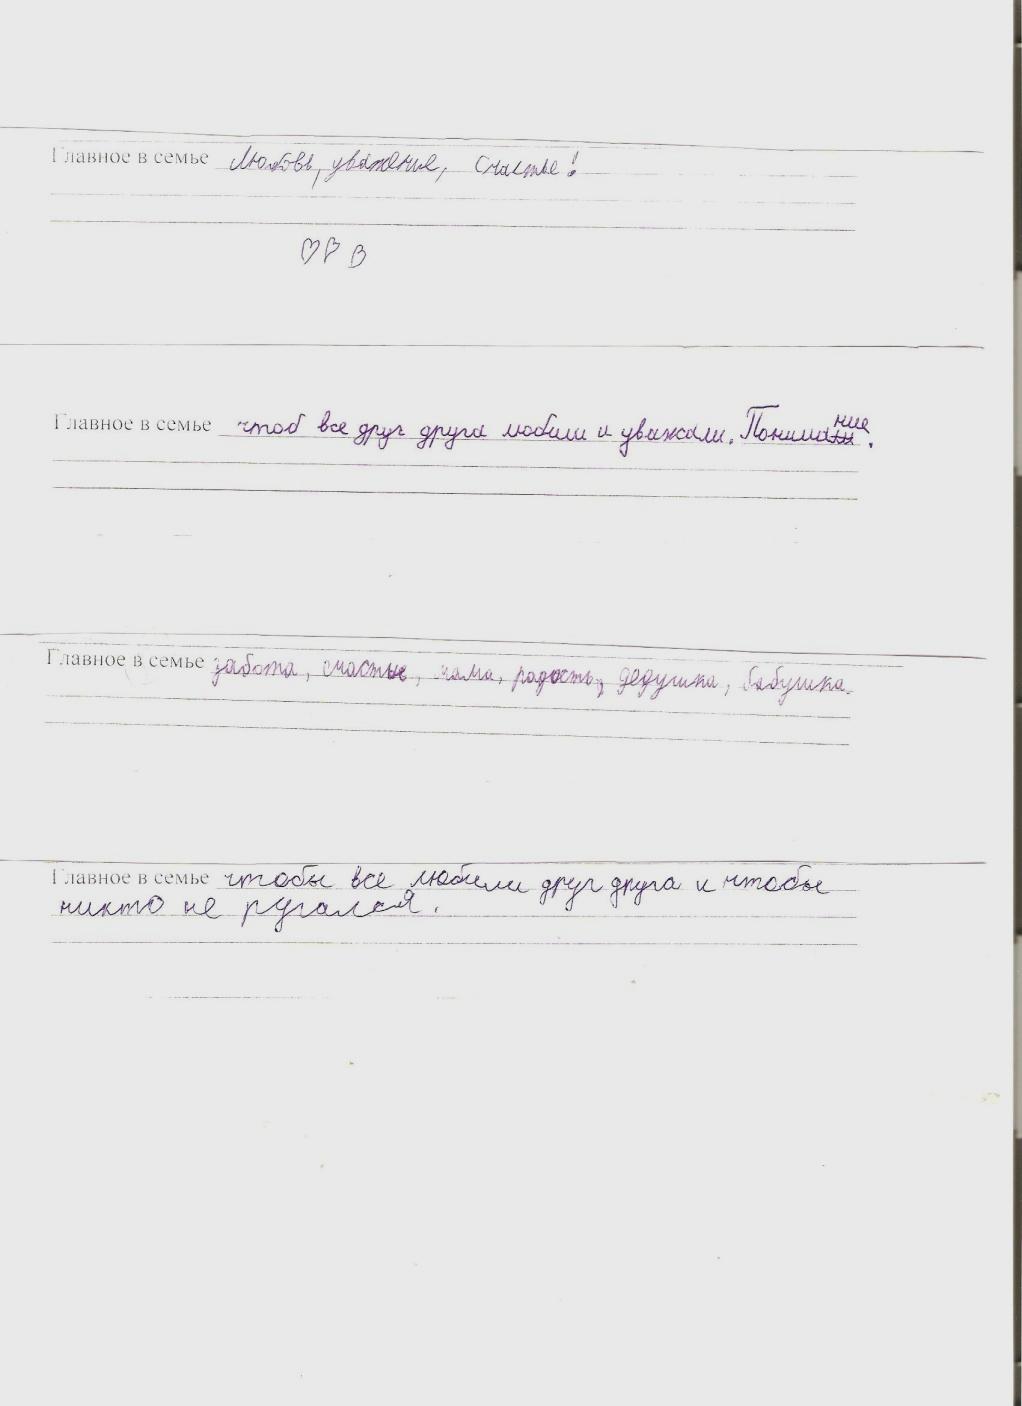 Главное в семье Любовь, уважение, счастье!
Главное в семье чтоб все друг друга любили и уважали. Понимание.
Главное в семье забота, счастье, мама, радость, дедушка, бабушка.
Главное в семье чтобы все любили друг друга и чтобы
никто не ругался.